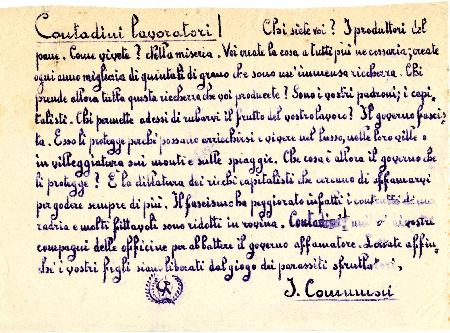 Contadini lavoratori! Chi siete voi? I produttori del
pane. Come vivete? Nella miseria. Voi create la cosa a tutti più necessaria; create
ogni anno migliaia di quintali di grano che sono un'immensa ricchezza. Chi
prende allora tutta questa ricchezza che voi producete? Sono i vostri padroni; i capi-
talisti. Chi permette ad essi di rubarvi il frutto del vostro lavoro? Il governo fascis-
ta. Esso li protegge perchè possano arricchirsi e vivere nel lusso, nelle loro ville o
in villeggiatura sui monti e sulle spiaggie. Che cosa è allora il governo che
li protegge? È la dittatura dei ricchi capitalisti che cercano di affamarvi
per godere sempre di più. Il fascismo ha peggiorato infatti i contratti di mez-
zadria e molti fittavoli sono ridotti in rovina. Contadini! ai vostri
compagni delle officine per abbattere il governo affamatore. Lottate affin-
chè i vostri figli siano liberati dal giogo dei parassiti sfruttatori.
I Comunisti